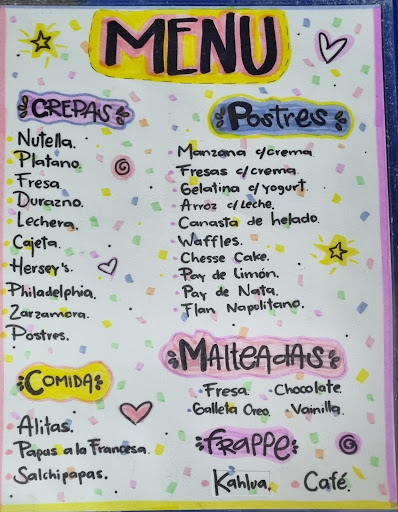 MENU
CREPAS
Nutella.
Platano.
Fresa.
Durazno.
Lechera.
Cajeta.
Hersey's.
Philadelphia.
Zarzamora.
Postres.
COMIDA
Alitas.
Papas a la Francesa.
Salchipapas.
Postres
Manzana c/crema
Fresas c/crema.
Gelatina c/yogurt.
Arroz c/Leche.
Canasta de helado.
Waffles.
Chesse Cake.
Pay de Limón.
Pay de Nata.
Flan Napolitano.
MALTEADAS
Fresa. Chocolate
Galleta Oreo. Vainilla.
FRAPPE
Kahlua. Café.